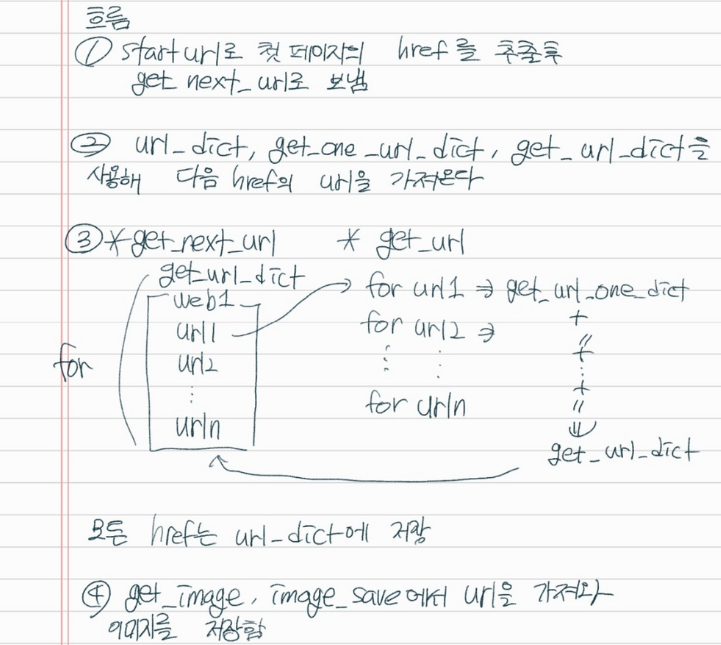 흐름
① start url로 첫 페이지의 href를 추출후
get next_url로 보냄
② url_dict, get_one_url_dict, get_url_dict를
사용해 다음 href의 url을 가져온다
③ *get_next_url * get_url
get_url_dict
web1
for url1 ⇒ get_url_one_dict
url1
for url2 ⇒
+
〃
for
url2
+
⋮
⋮ ⋮
⋮
+
for urln
〃
urln
⇓
get_url_dict
모든 href는 url_dict에 저장
④ get_image, image_save에서 url을 가져와
이미지를 저장함